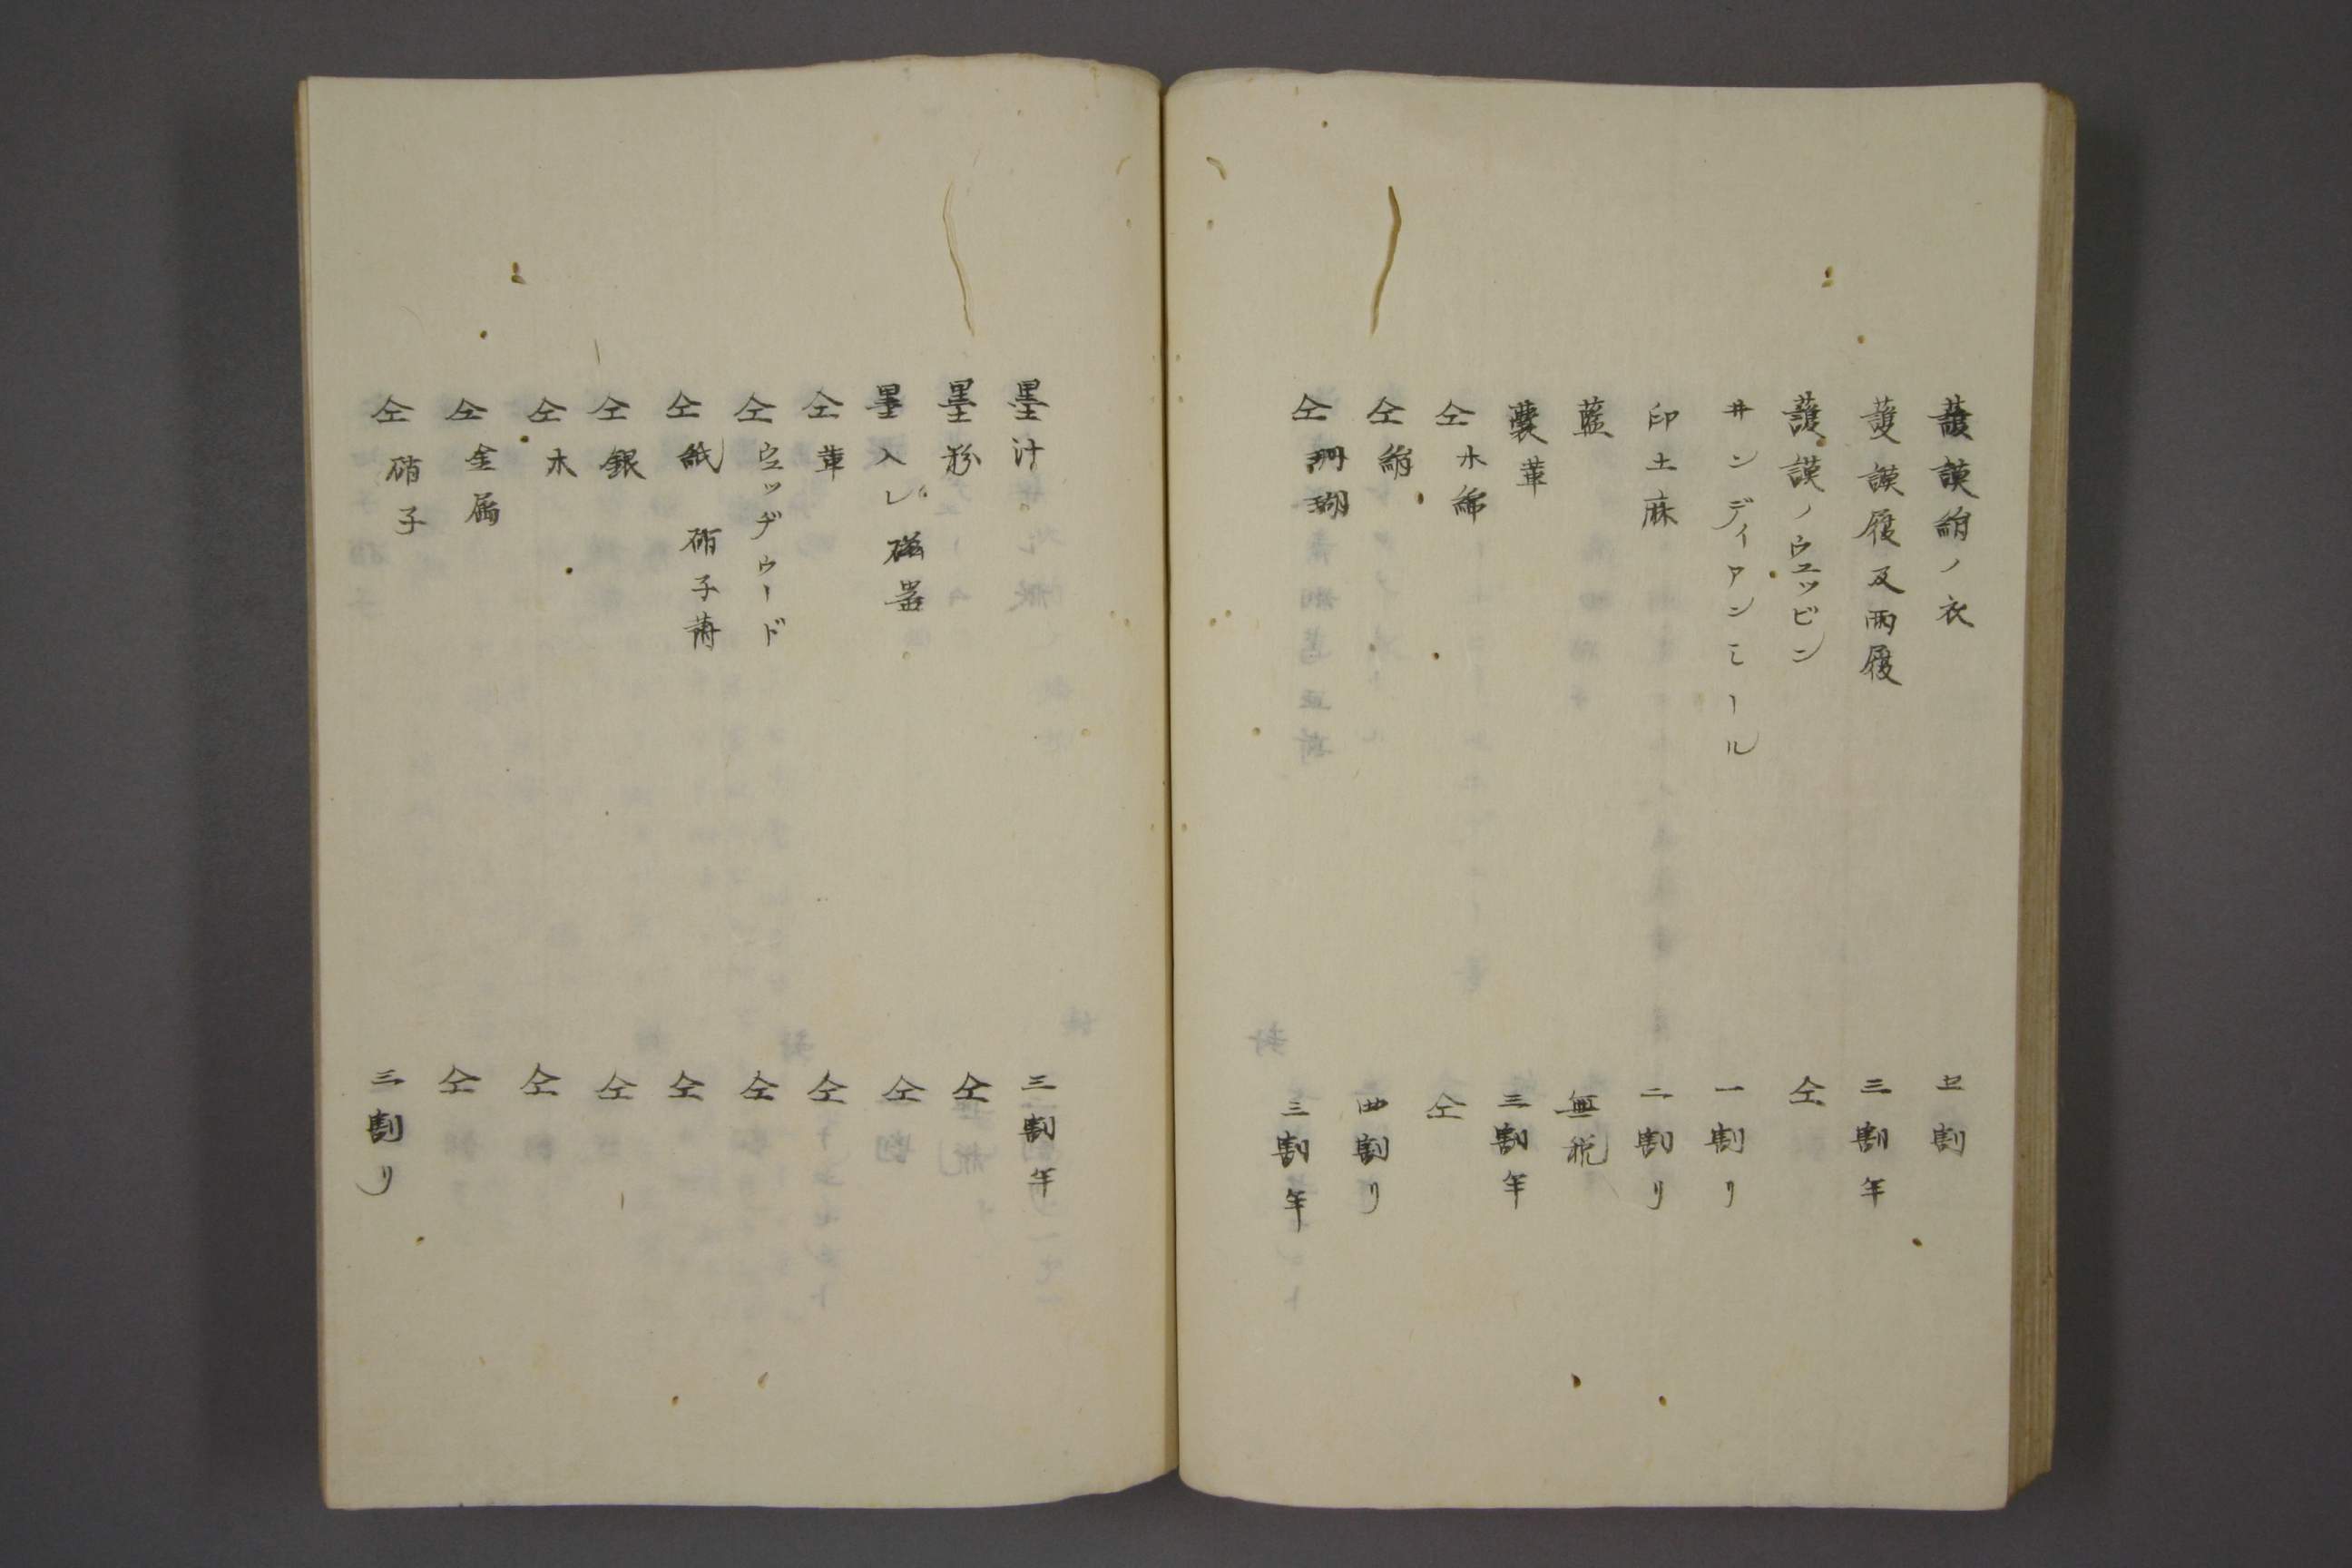 護謨絹ノ衣　七割
護謨履及雨履　三割半
護謨ノウエッビン　仝
井ンディアンミール　一割リ
印土麻　二割リ
藍　無税
嚢革　三割半
仝木綿　仝
仝絹　四割リ
仝珊瑚　三割半
墨汁　三割半
墨粉　仝
墨入レ磁器　仝
仝革　仝
仝ウエッヂウード　仝
仝紙硝子薄　仝
仝銀　仝
仝木　仝
仝金属　仝
仝硝子　三割リ